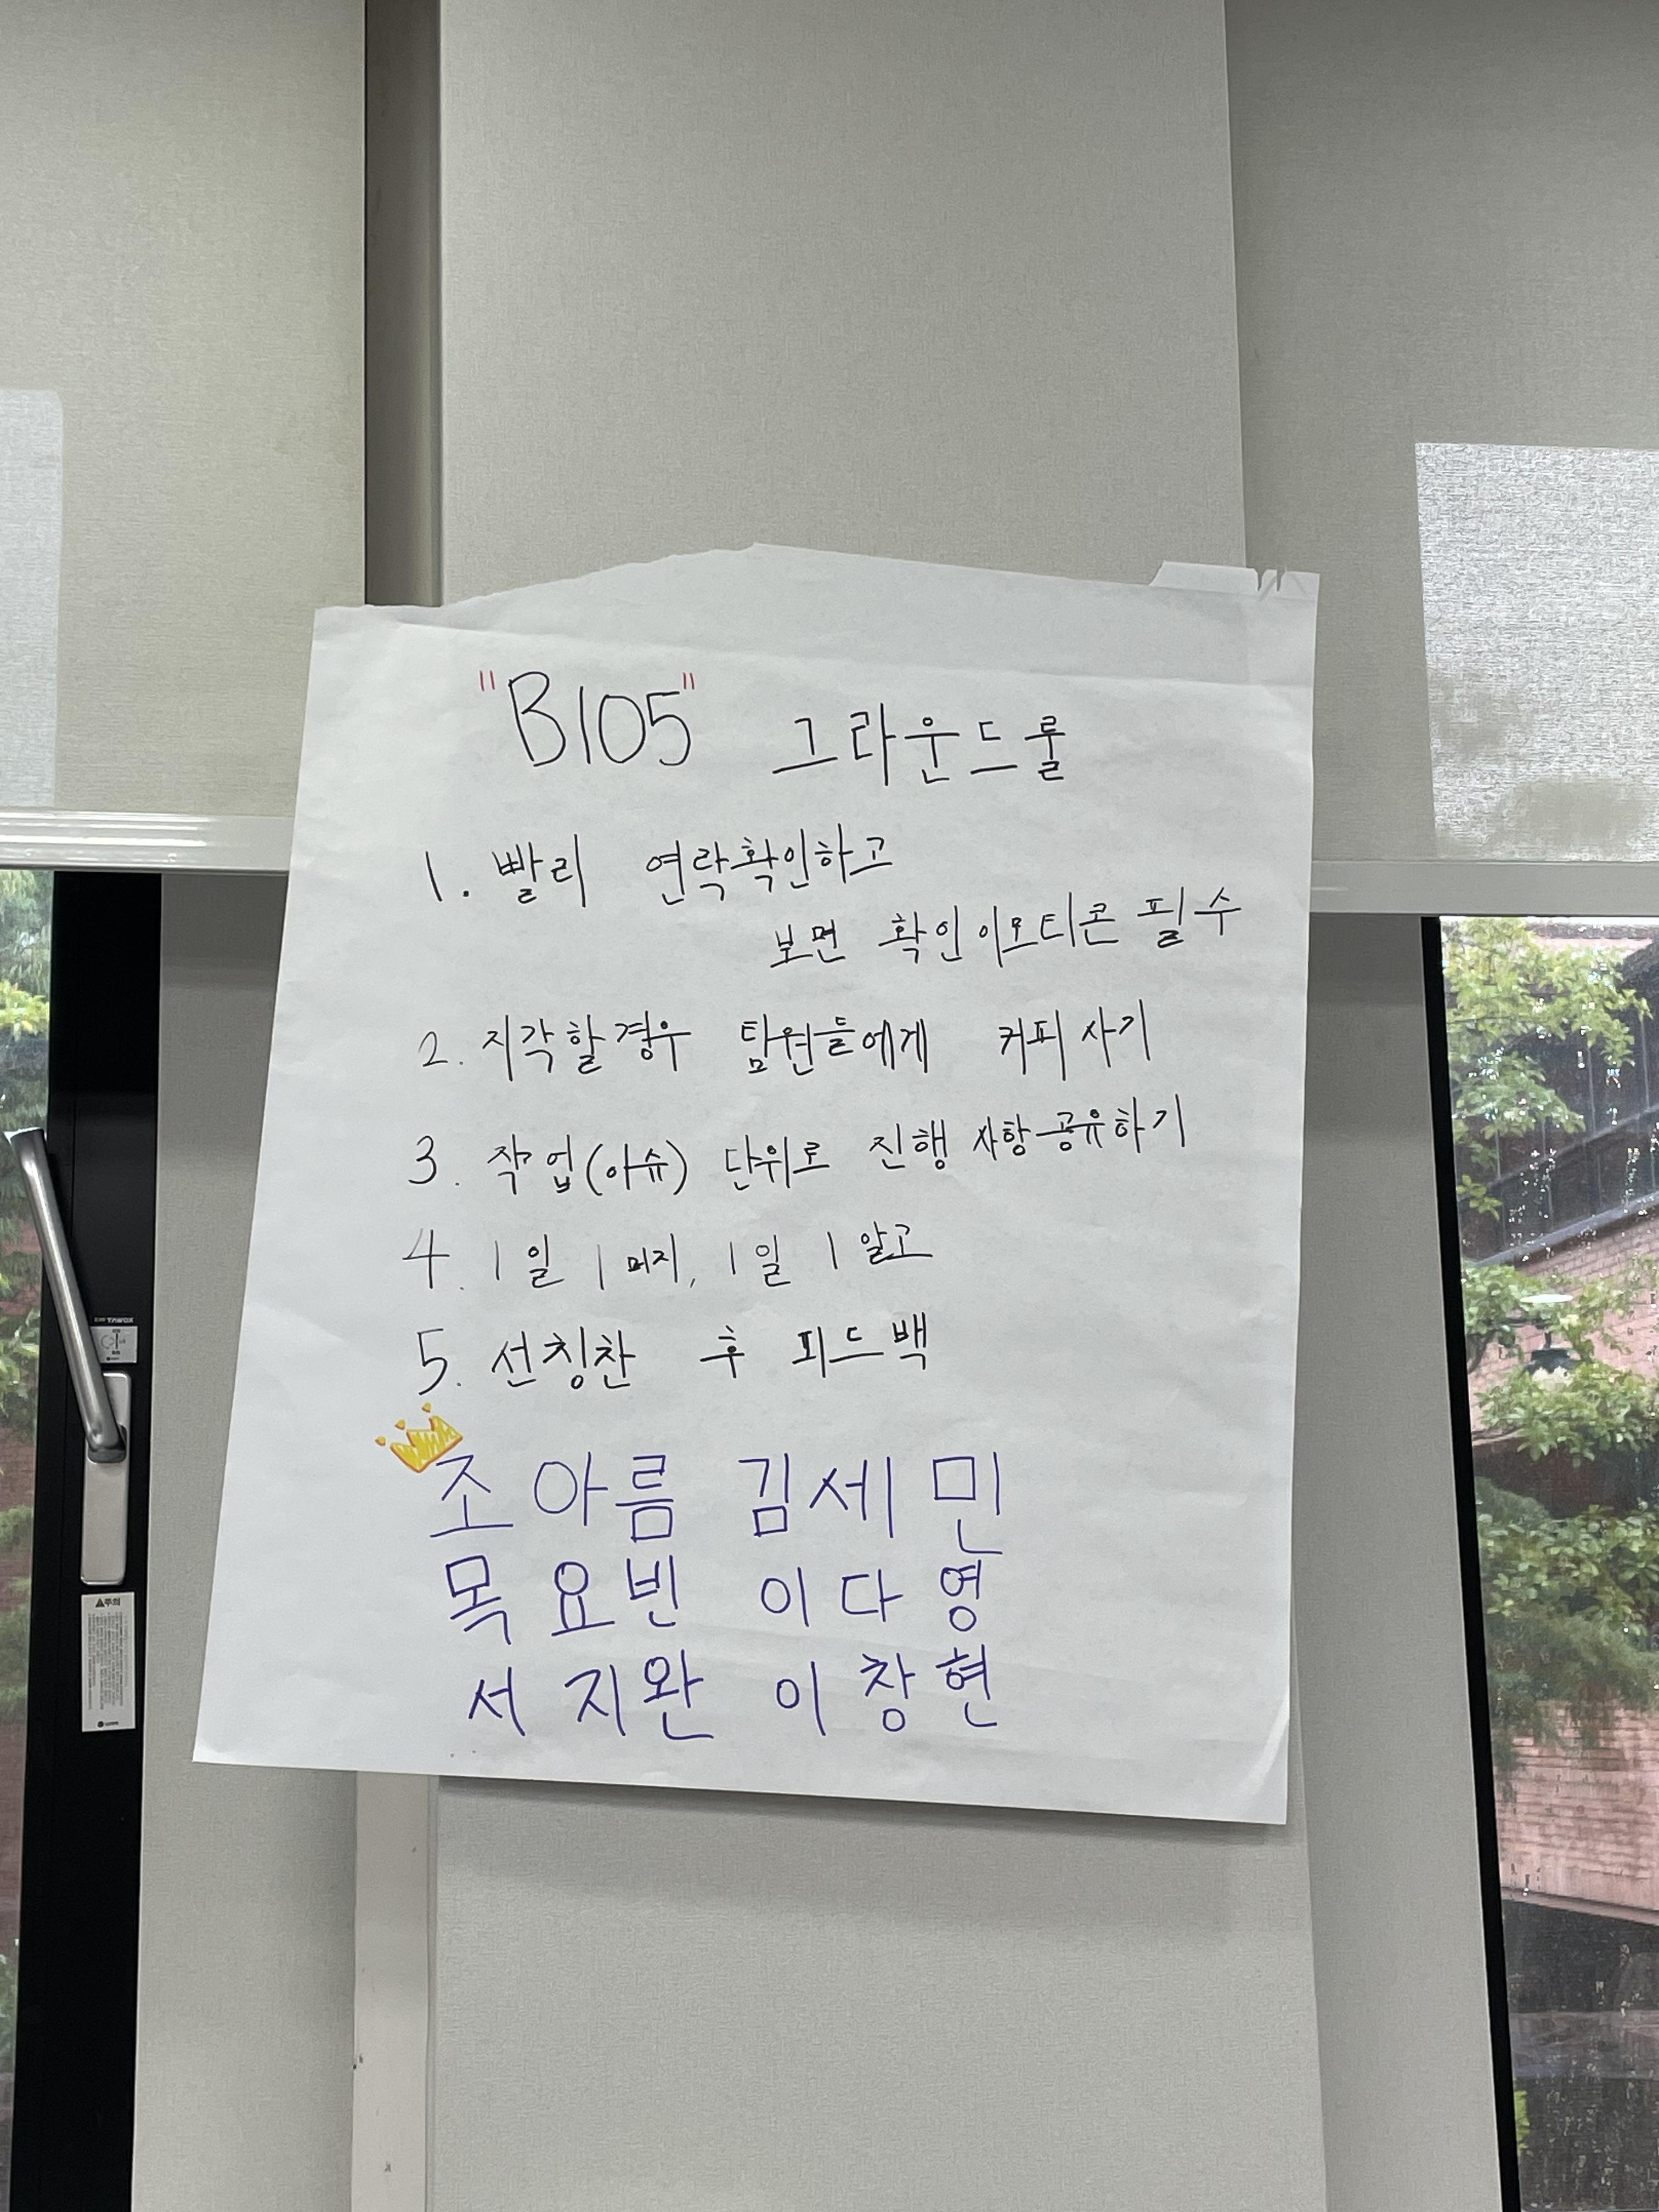 "B105" 그라운드룰
1. 빨리 연락확인하고
보면 확인 이모티콘 필수
2. 지각할경우 팀원들에게 커피 사기
3. 작업(이슈) 단위로 진행 사항 공유하기
4. 1일 1머지, 1일 1알고
5. 선칭찬 후 피드백
조아름 김세민
목요빈 이다영
서지완 이창현
주의